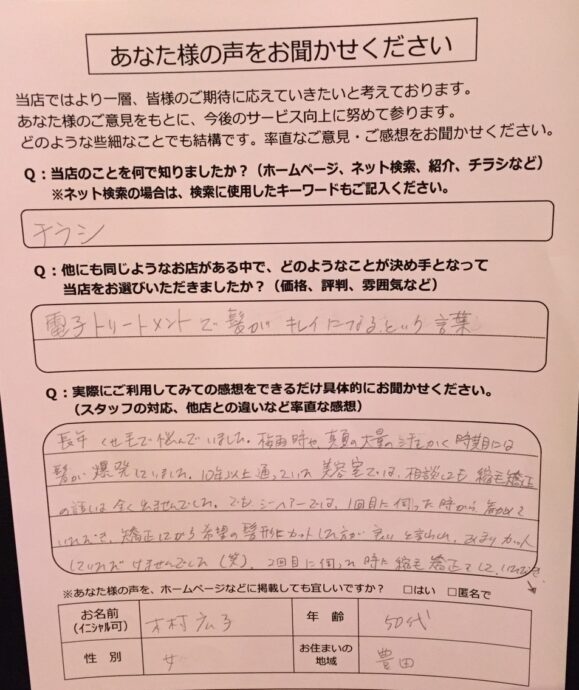 あなた様の声をお聞かせください
当店ではより一層、皆様のご期待に応えていきたいと考えております。
あなた様のご意見をもとに、今後のサービス向上に努めて参ります。
どのような些細なことでも結構です。率直なご意見・ご感想をお聞かせください。
Q：当店のことを何で知りましたか？（ホームページ、ネット検索、紹介、チラシなど）
※ネット検索の場合は、検索に使用したキーワードもご記入ください。
チラシ
Q：他にも同じようなお店がある中で、どのようなことが決め手となって
当店をお選びいただきましたか？（価格、評判、雰囲気など）
電子トリートメントで髪がキレイになる、という言葉
Q：実際にご利用してみての感想をできるだけ具体的にお聞かせください。
（スタッフの対応、他店との違いなど率直な感想）
長年くせ毛で悩んでいました。梅雨時や、真夏の大量の汗をかく時期には
髪が爆発していました。10年以上通っていた美容室では、相談しても縮毛矯正
の話は全く出ませんでした。でもシーヘアーでは、1回目に伺った時から、勧めて
いただき、矯正してから希望の髪形にカットした方が良いと言われ、カット
していただけませんでした（笑）。2回目に伺った時に縮毛矯正をして、いただき、
※あなた様の声を、ホームページなどに掲載しても宜しいですか？ □はい □匿名で
お名前 木村広子 年 齢 50代
（イニシャル可）
性 別 女 お住まいの地域 豊田